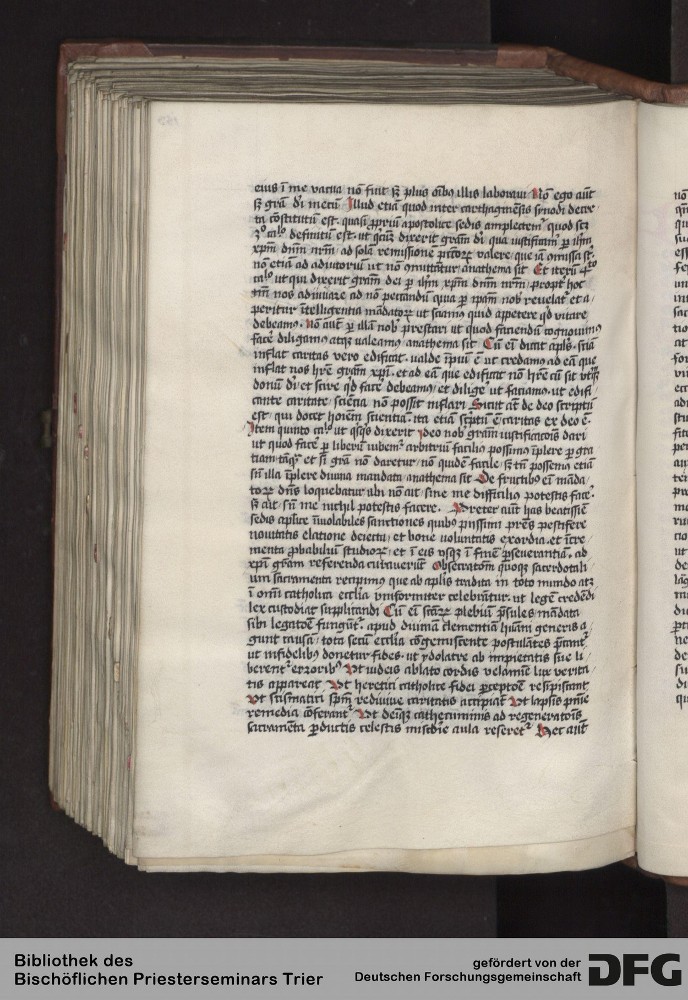 eius ī me vacua nō fuit sꝫ plus oībꝰ illis laboraui Nō ego aūt
sꝫ gr̄a dī mecū Illud etiā quod inter carthaginēsis synodi decre
ta cōstitutū est. quasi ꝓpriū apostolice sedis amplectemꝰ quod scꝫ
3º caº definitū est. ut quicūqꝫ dixerit grām dī qua iustificamꝰ ꝑ ihm̄
xpm̄ dnm̄ nrm̄ ad solā remissionē pctōꝝ valere, que iā cōmissa st̄.
nō etiā ad adiutoriū ut nō cōmittātur. anathema sit Et iterū 4to
caº ut qui dixerit grām dei ꝑ ihm̄ xpm̄ dnm̄ nrm̄, propt̄ hoc
tm̄ nos adiuuare ad nō peccandū quia ꝑ ipam nob̄ reuelat̄ et a/
peritur ītelligentia mandatoꝝ ut sciamꝰ quid appetere qd̄ vitare
debeamꝰ. nō aūt ꝑ illā nob̄ prestari ut quod faciendū cognouimꝰ
facē diligamꝰ atqꝫ valeamꝰ. anathema sit Cū eī dicat apls̄. sciā
inflat caritas vero edificat. valde īpiū ē ut credamꝰ ad eā que
inflat nos hr̄e grām xp̄i. et ad eā que edificat nō hr̄e cū sit utrūqꝫ
donū dī et scire qd̄ facē debeamꝰ, et diligē ut faciamꝰ. ut edifi/
cante caritate, sciēcia nō possit inflari Sicut aūt de deo scriptū
est, qui docet hoīem scientiā. ita etiā scptū ē caritas ex deo ē.
Item quinto caº ut qsqs dixerit ideo nob̄ grām iustificacōis dari
ut quod facē ꝑ liberū iubemꝰ arbitriū faciliꝰ possimꝰ īplere ꝑ gra
tiam. tāqꝫ et si gr̄a nō daretur, nō quidē facile, sꝫ tn̄ possemꝰ etiā
sn̄ illa īplere diuina mandata, anathema sit De fructibꝰ eī māda/
toꝝ dn̄s loquebatur ubi nō ait, sine me difficiliꝰ potestis facē.
sꝫ ait sn̄ me nichil potestis facere. Preter aūt has beatissīē
sedis aplīce īuiolabiles sanctiones quibꝰ piissimi prēs pestifere
nouitatis elatione deiecta, et bone voluntatis exordia, et īcre/
menta ꝓbabiliū studioꝝ, et ī eis usqꝫ ī finē ꝑseuerantiā. ad
xp̄i grām referenda cuiauerūt Obsecratōm quoqꝫ sacerdotali/
um sacramenta recipimꝰ que ab aplis tradita in toto mundo atqꝫ
ī omī catholica eccl̄ia uniformiter celebrātur. ut legē credēdi
lex custodiat supplicandi Cū eī sctāꝝ plebiū p̄sules mādata
sibi legatōē fungūt̄. apud diuinā clementiā hūani generis a/
gunt causā, tota secū eccl̄ia cōgemiscente postulātes p̄cant̄
ut infidelibꝰ donetur fides. ut ydolatre ab impietatis sue li/
berent̄ erroribꝰ Ut iudeis ablato cordis velamine lux verita/
tis appareat Ut heretici catholice fidei ꝑceptōē resipiscant
Ut scismatici spm̄ rediuiue caritatis accipiāt Ut lapsis pn̄ie
remedia cōferant̄ Ut deīqꝫ cathecuminis ad regeneratōis
sacramēta ꝑductis celestis mīcdie aula reseret̄ Hec aūt
Bibliothek des
Bischöflichen Priesterseminars Trier
gefördert von der
Deutschen Forschungsgemeinschaft DFG